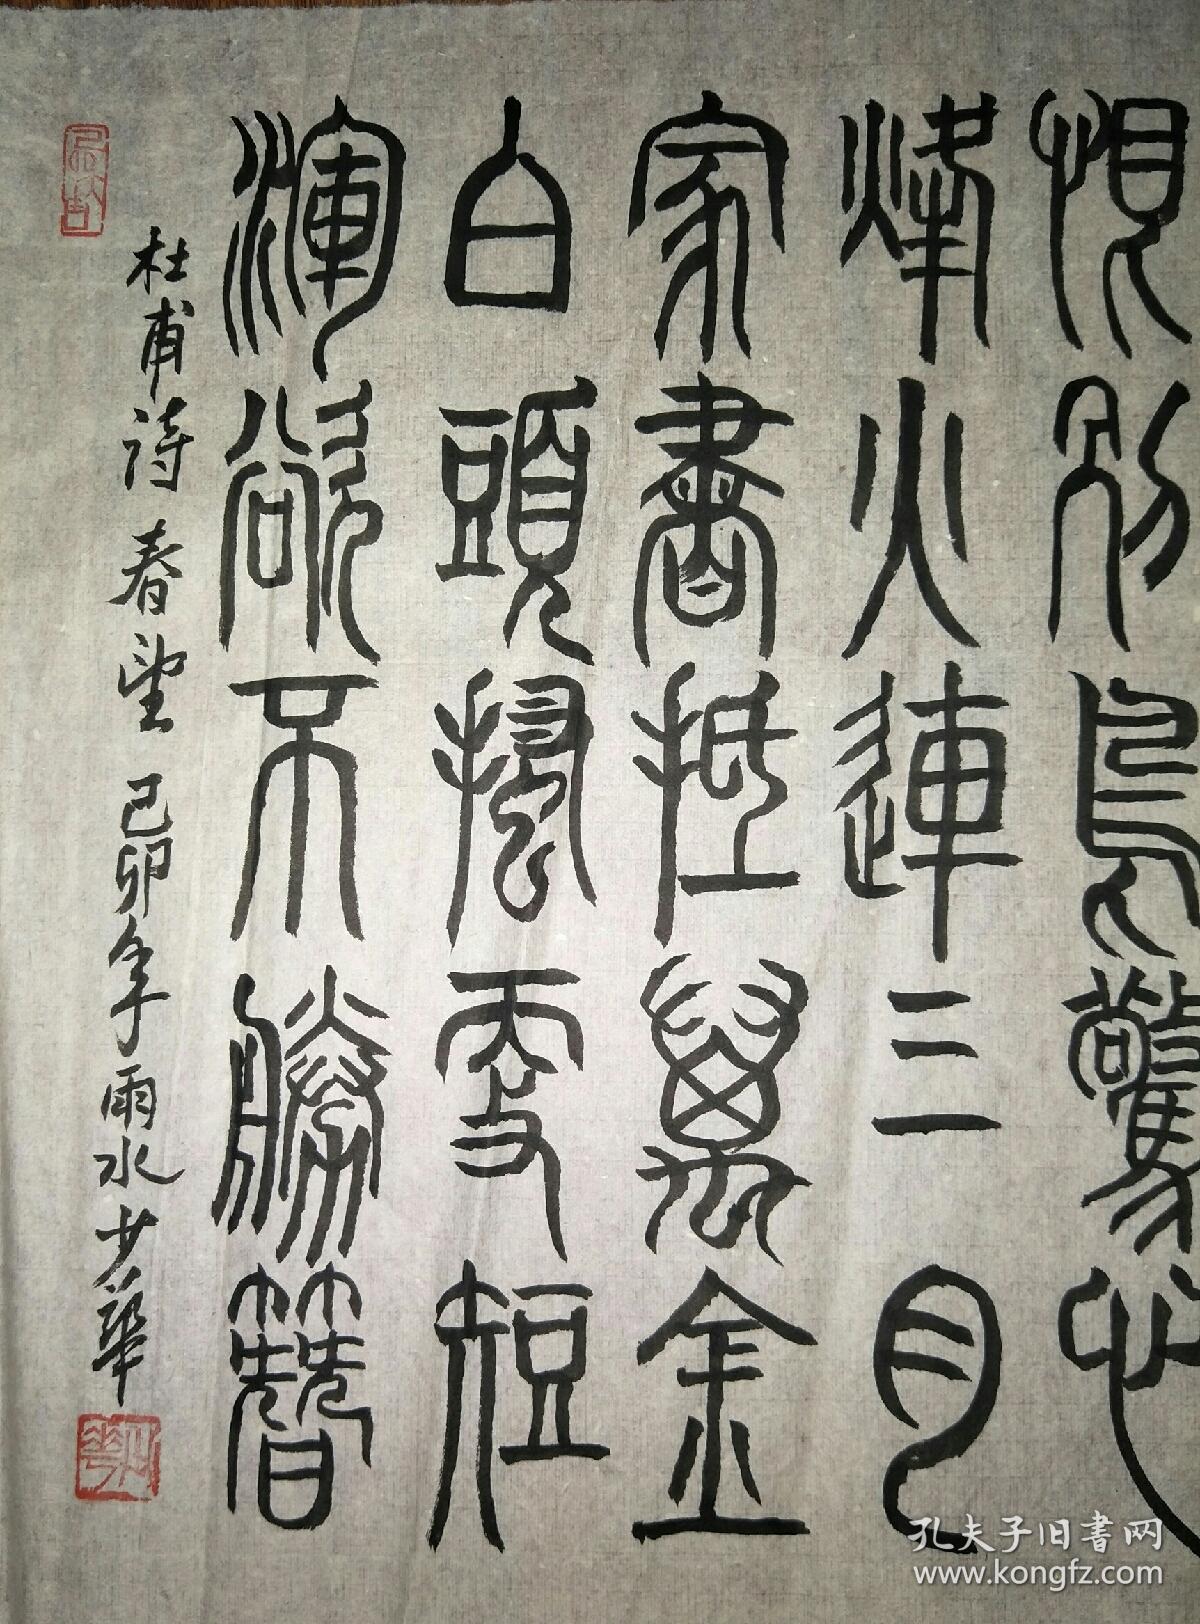 恨別鳥驚心
烽火連三月
家書抵萬金
白頭搔更短
渾欲不勝簪
杜甫詩春望己卯年雨水少華
孔夫子旧書网
www.kongfz.com